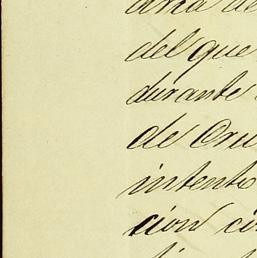 del que
durante
de Cru
intento
cion ci